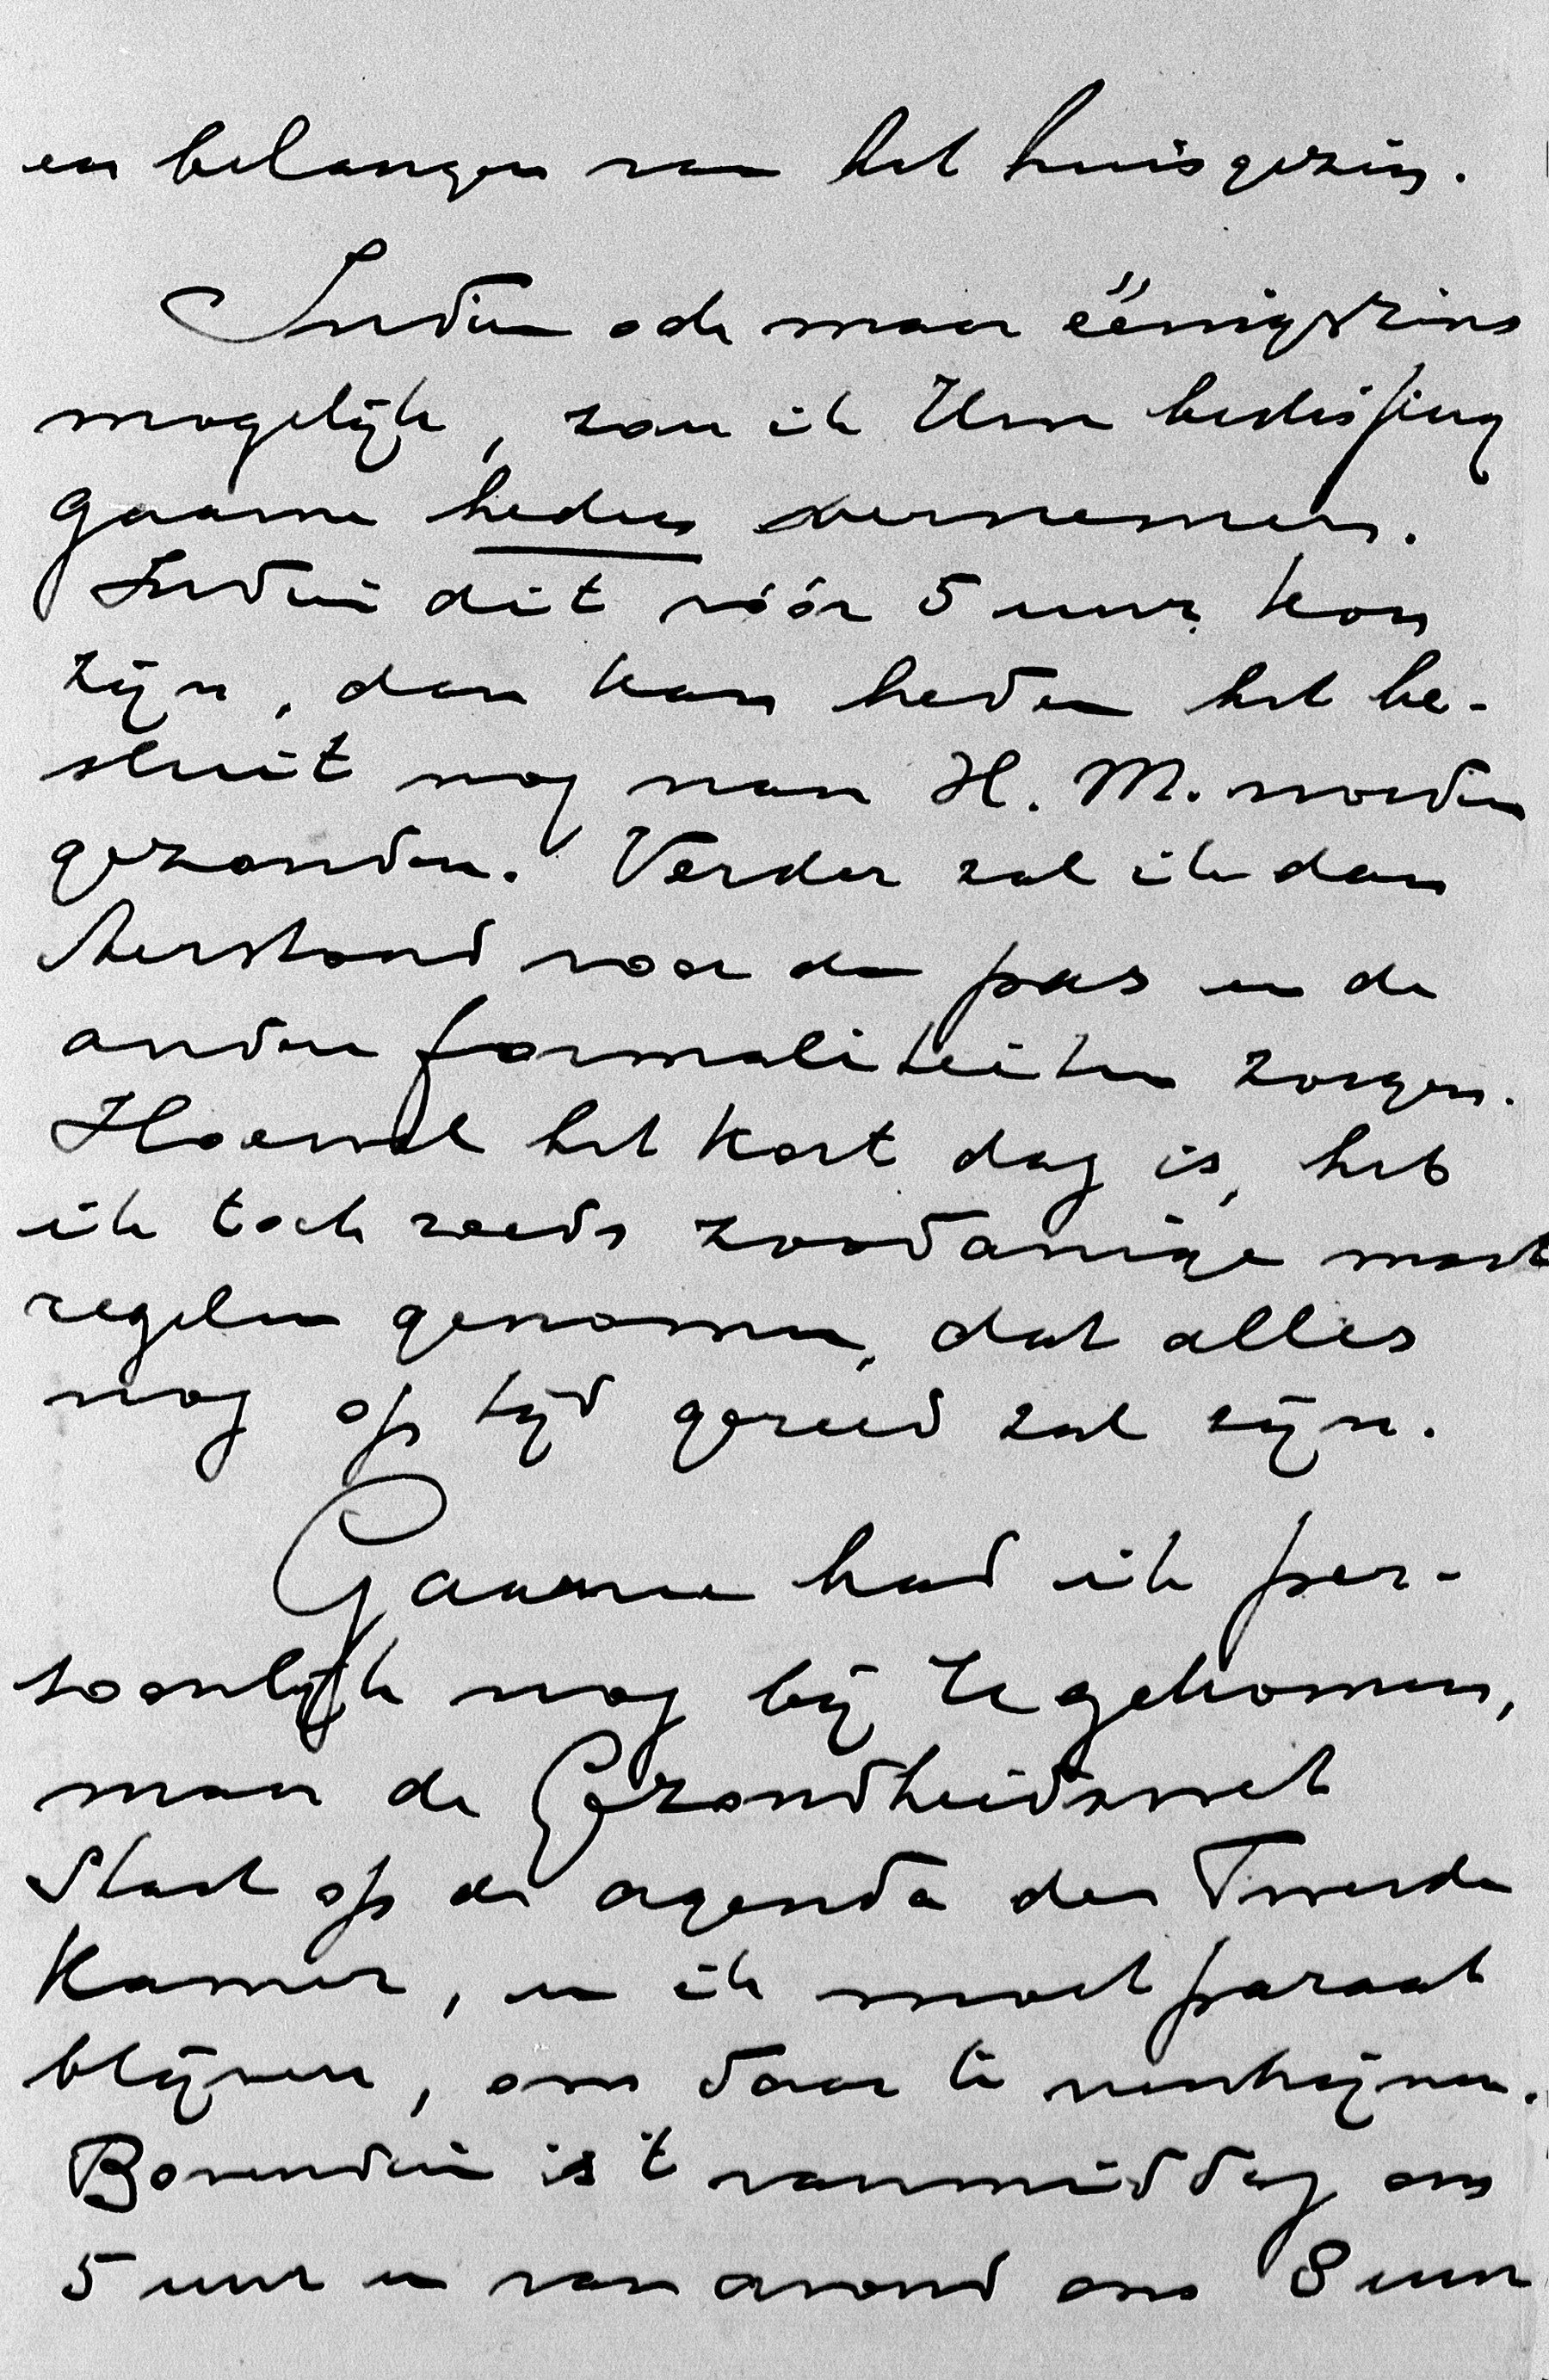 en belangen van het huisgezin.
Indien ook maar éénigszins
mogelijk, zou ik Uwe beslissing
gaarne heden vernemen.
Indien dit vóór 5 uur kon
zijn, dan kan heden het be-
sluit nog naar H. M. worden
gezonden. Verder zal ik dan
terstond voor den pas en de
andere formaliteiten zorgen.
Hoewel het kort dag is, heb
ik toch reeds zoodanige maat
regelen genomen, dat alles
nog op tijd gereed zal zijn.
Gaarne had ik per-
soonlijk nog bij U gekomen,
maar de Gezondheidswet
staat op de agenda der Tweede
Kamer, en ik moet paraat
blijven, om daar te verschijnen.
Bovendien is 't vanmiddag om
5 uur en van avond om 8 uur